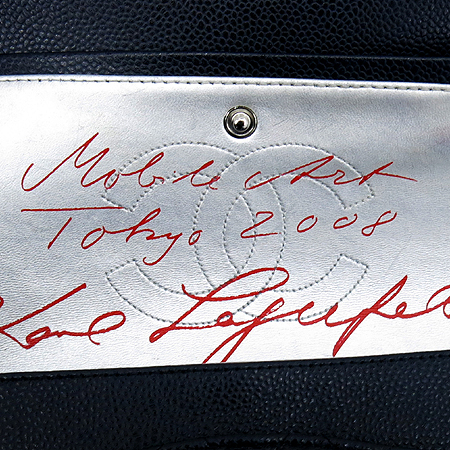 Mobile Art
Tokyo 2008
Karl Lagerfel